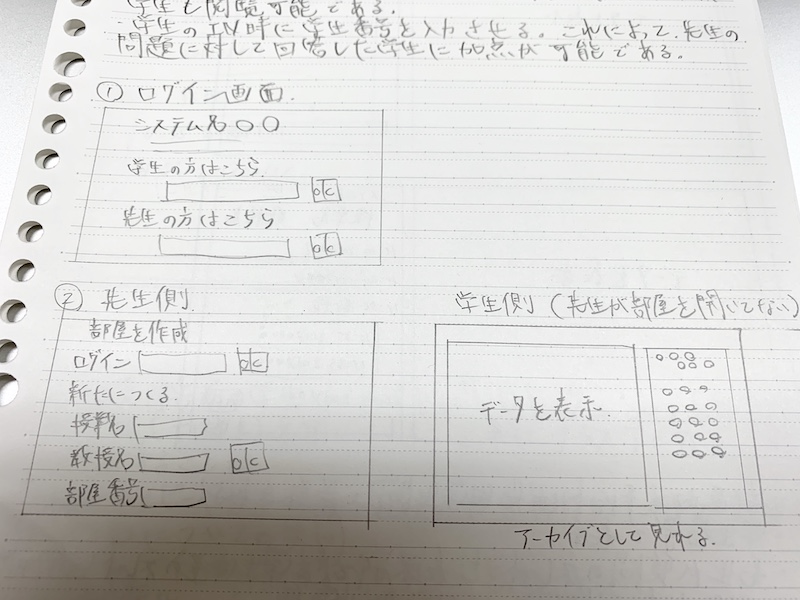 学生も閲覧可能である.
・学生のIN時に学生番号を入力させる. これによって, 先生の
問題に対して回答した学生に加点が可能である.
① ログイン画面.
システム名〇〇
学生の方はこちら
OK
先生の方はこちら
OK
② 先生側
部屋を作成
ログイン OK
新たにつくる
授業名
教授名 OK
部屋番号
学生側 (先生が部屋を開いてない)
データを表示.
アーカイブとして見れる.